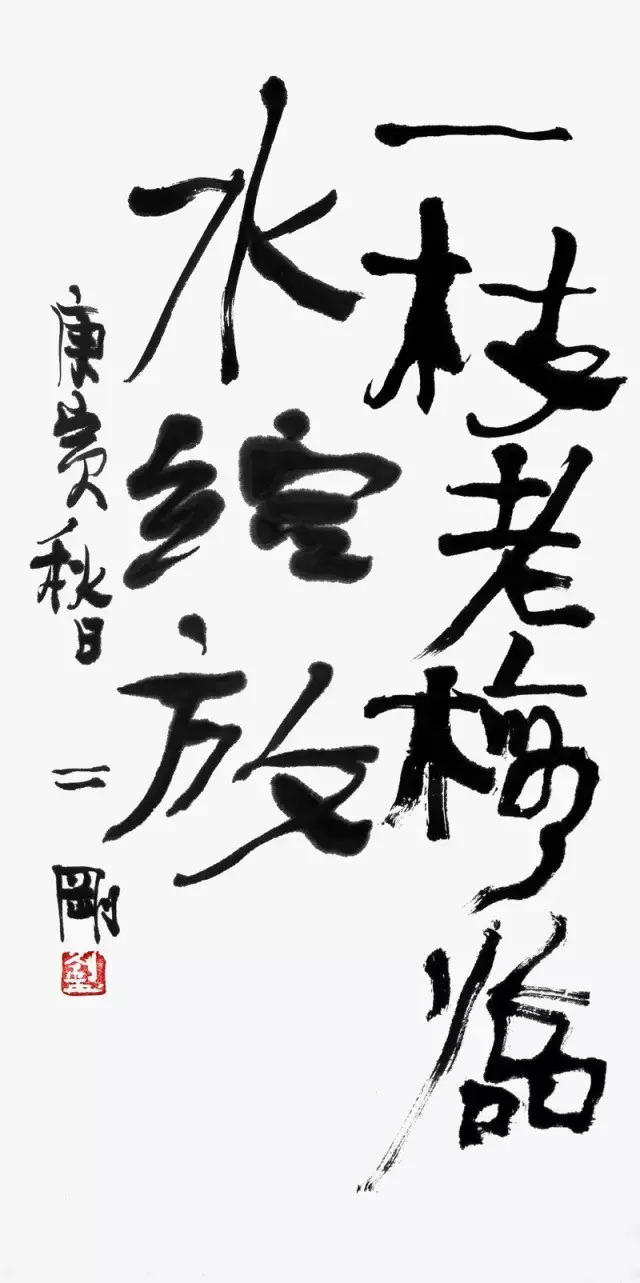 一枝老梅临
水绽放
庚寅秋日 二剛